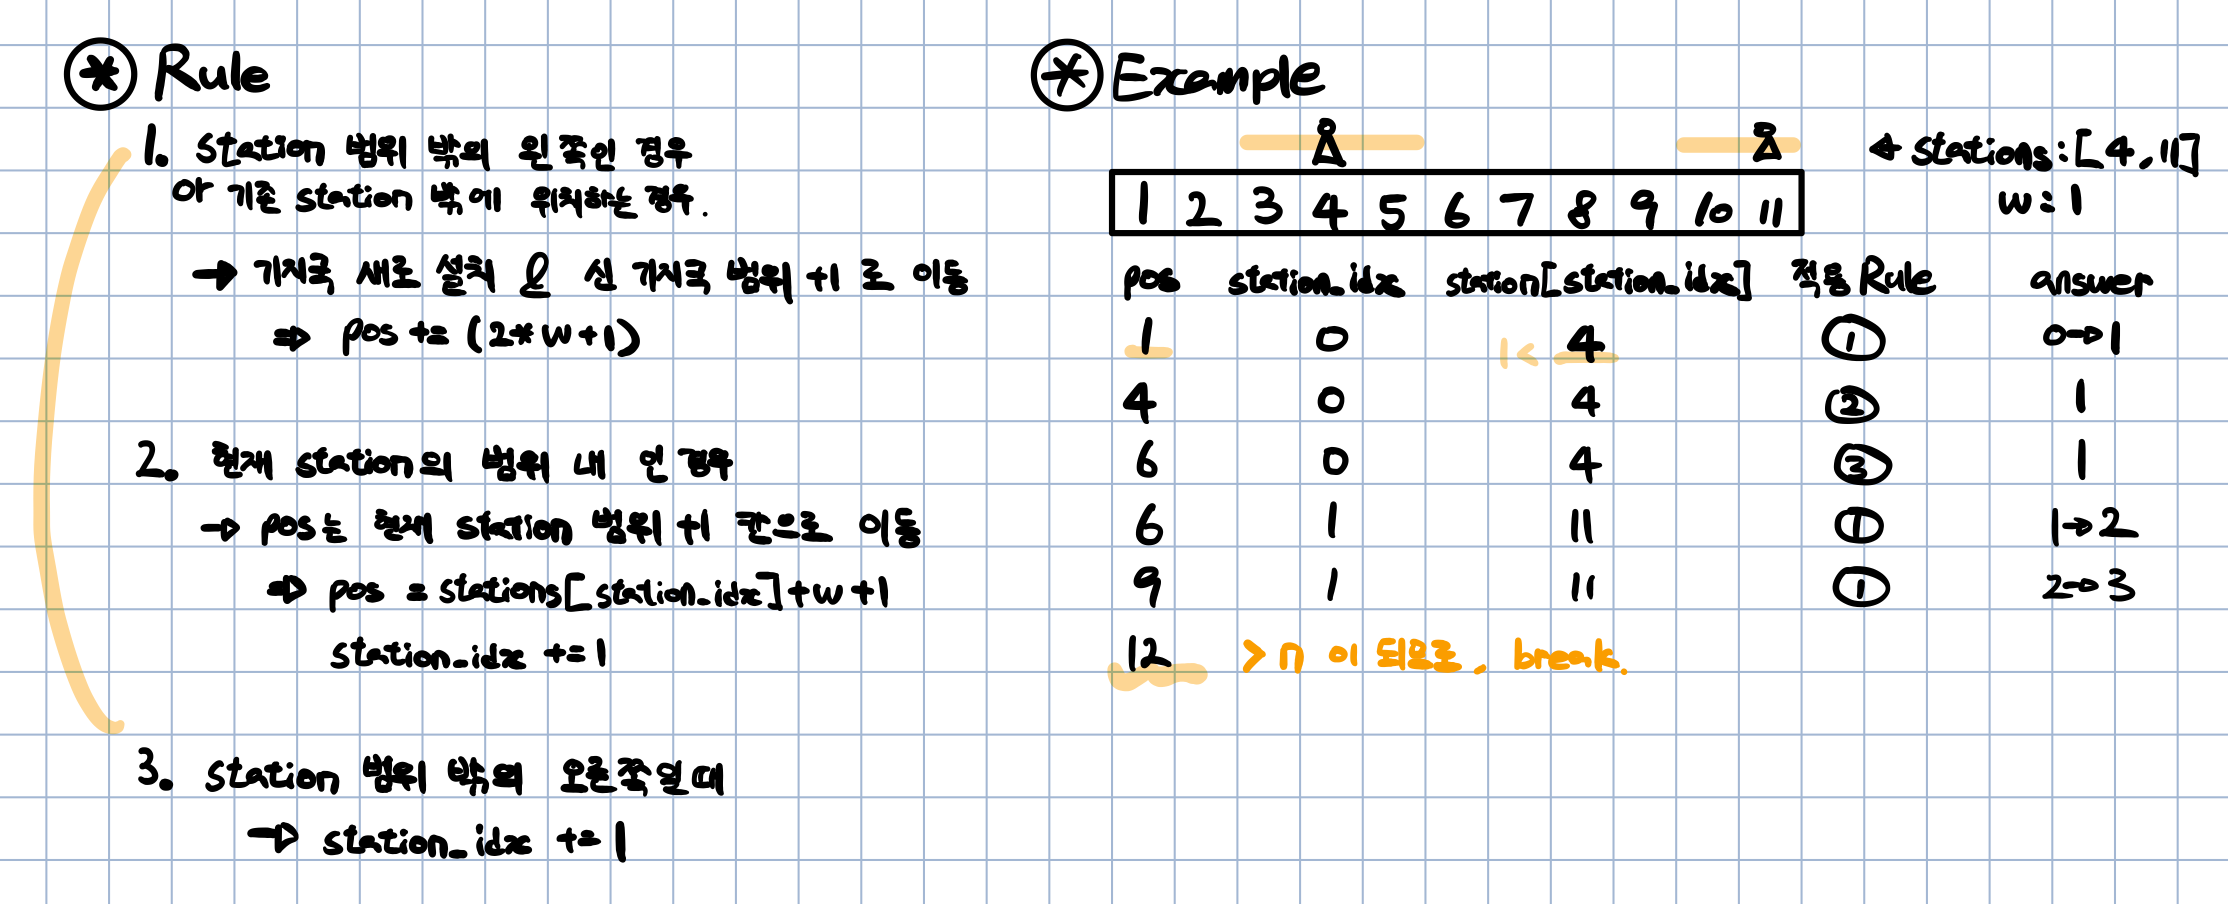 * Rule
1. station 범위 밖의 왼쪽인 경우
or 기존 station 밖에 위치하는 경우.
→ 기지국 새로 설치 & 신 기지국 범위 +1 로 이동
⇒ pos += (2*w+1)
2. 현재 station의 범위 내 인 경우
→ pos는 현재 station 범위 +1 칸으로 이동
⇒ pos = stations[station_idx]+w+1
station_idx +=1
3. station 범위 밖의 오른쪽일때
→ station_idx += 1
* Example
← stations:[4,11]
w:1
1 2 3 4 5 6 7 8 9 10 11
pos station_idx station[station_idx] 적용 Rule answer
1 0 1< 4 ① 0→1
4 0 4 ② 1
6 0 4 ③ 1
6 1 11 ① 1→2
9 1 11 ① 2→3
12 > n 이 되므로, break.